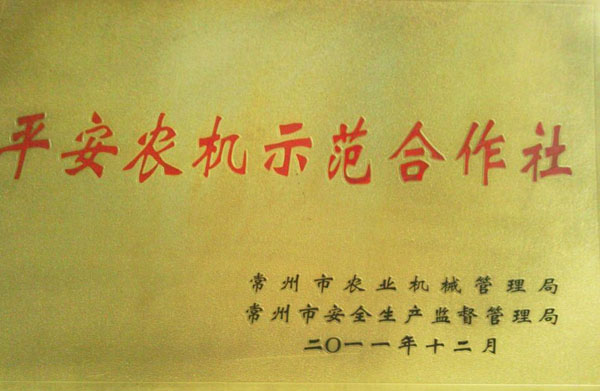 平安农机示范合作社
常州市农业机械管理局
常州市安全生产监督管理局
二〇一一年十二月